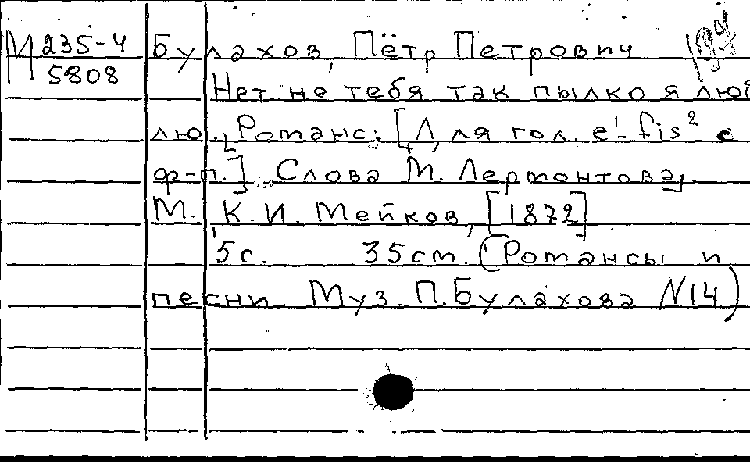 М 235-4
5808
Булахов, Пётр Петрович
Нет не тебя так пылко я люб
лю. Романс: [Для гол. e¹-fis² с
ф-п.]. Слова М. Лермонтова,
М. К.И. Мейков, [1872]
5с. 35см. (Романсы и
песни. Муз. П. Булахова N14)